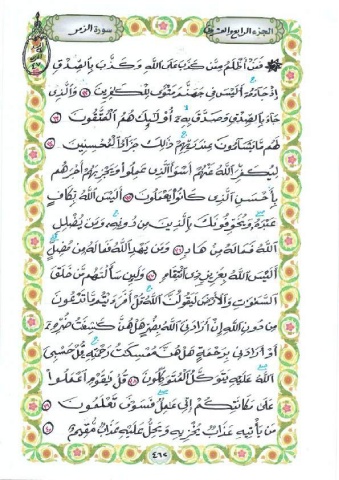 الجزء الرابع والعشرون سورة الزمر
فمن أظلم ممن كذب على الله وكذب بالصدق
إذ جاءه أليس في جهنم مثوى للكافرين ٣٢ والذي
جاء بالصدق وصدق به أولئك هم المتقون ٣٣
لهم ما يشاءون عند ربهم ذلك جزاء المحسنين ٣٤
ليكفر الله عنهم أسوأ الذي عملوا ويجزيهم أجرهم
بأحسن الذي كانوا يعملون ٣٥ أليس الله بكاف
عبده ويخوفونك بالذين من دونه ومن يضلل
الله فما له من هاد ٣٦ ومن يهد الله فما له من مضل
أليس الله بعزيز ذي انتقام ٣٧ ولئن سألتهم من خلق
السموات والأرض ليقولن الله قل أفرءيتم ما تدعون
من دون الله إن أرادني الله بضر هل هن كشفت ضره
أو أرادني برحمة هل هن ممسكت رحمته قل حسبي
الله عليه يتوكل المتوكلون ٣٨ قل يقوم اعملوا
على مكانتكم إني عمل فسوف تعلمون ٣٩
من يأتيه عذاب يخزيه ويحل عليه عذاب مقيم ٤٠
٤٦٢